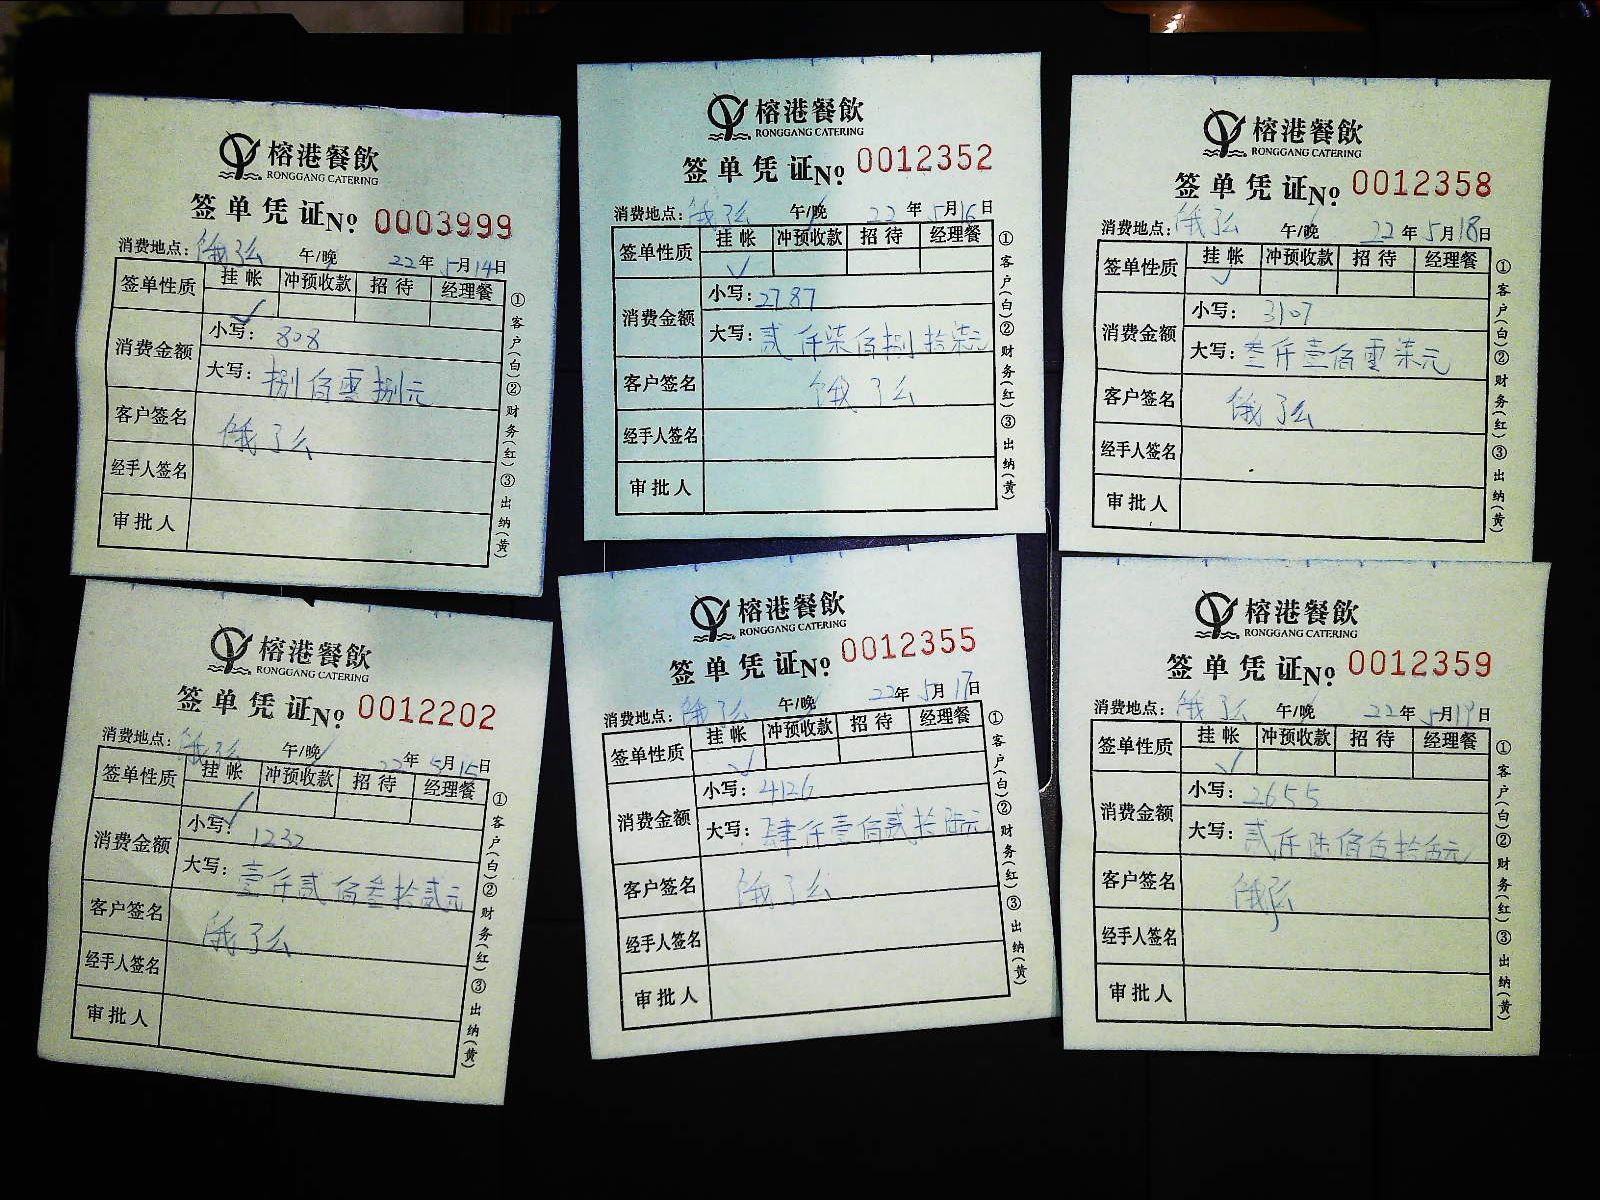 榕港餐飲
RONGGANG CATERING
签单凭证№ 0003999
消费地点：饿了么 午/晚 22年5月14日
签单性质 挂帐 冲预收款 招待 经理餐
✓
消费金额 小写：808
大写：捌佰零捌元
客户签名 饿了么
经手人签名
审批人
①客户(白)②财务(红)③出纳(黄)
榕港餐飲
RONGGANG CATERING
签单凭证№ 0012352
消费地点：饿了么 午/晚 22年5月16日
签单性质 挂帐 冲预收款 招待 经理餐
✓
消费金额 小写：2787
大写：贰仟柒佰捌拾柒元
客户签名 饿了么
经手人签名
审批人
①客户(白)②财务(红)③出纳(黄)
榕港餐飲
RONGGANG CATERING
签单凭证№ 0012358
消费地点：饿了么 午/晚 22年5月18日
签单性质 挂帐 冲预收款 招待 经理餐
✓
消费金额 小写：3107
大写：叁仟壹佰零柒元
客户签名 饿了么
经手人签名
审批人
①客户(白)②财务(红)③出纳(黄)
榕港餐飲
RONGGANG CATERING
签单凭证№ 0012202
消费地点：饿了么 午/晚 22年5月15日
签单性质 挂帐 冲预收款 招待 经理餐
✓
消费金额 小写：1232
大写：壹仟贰佰叁拾贰元
客户签名 饿了么
经手人签名
审批人
①客户(白)②财务(红)③出纳(黄)
榕港餐飲
RONGGANG CATERING
签单凭证№ 0012355
消费地点：饿了么 午/晚 22年5月17日
签单性质 挂帐 冲预收款 招待 经理餐
✓
消费金额 小写：4126
大写：肆仟壹佰贰拾陆元
客户签名 饿了么
经手人签名
审批人
①客户(白)②财务(红)③出纳(黄)
榕港餐飲
RONGGANG CATERING
签单凭证№ 0012359
消费地点：饿了么 午/晚 22年5月19日
签单性质 挂帐 冲预收款 招待 经理餐
✓
消费金额 小写：2655
大写：贰仟陆佰伍拾伍元
客户签名 饿了么
经手人签名
审批人
①客户(白)②财务(红)③出纳(黄)